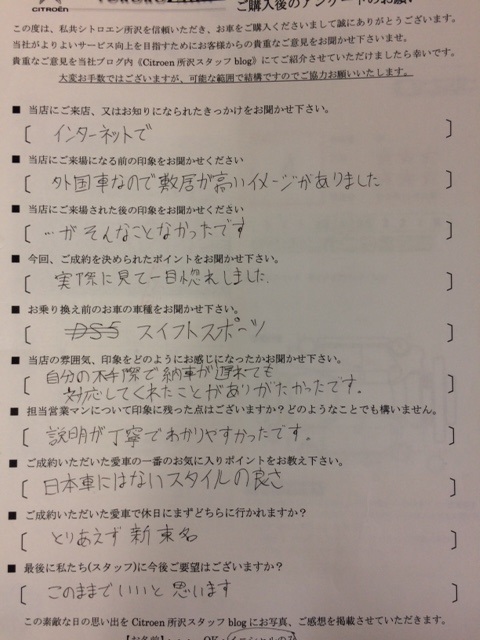 CITROËN
ご購入後のアンケートのお願い
この度は、私共シトロエン所沢を信頼いただき、お車をご購入くださいまして誠にありがとうございます。
当社がよりよいサービス向上を目指すためにお客様からの貴重なご意見をお聞かせ下さいませ。
貴重なご意見を当社ブログ内《Citroen所沢スタッフblog》にてご紹介させていただけましたら幸いです。
大変お手数ではございますが、可能な範囲で結構ですのでご協力お願いいたします。
■ 当店にご来店、又はお知りになられたきっかけをお聞かせ下さい。
[ インターネットで ]
■ 当店にご来場になる前の印象をお聞かせください
[ 外国車なので敷居が高いイメージがありました ]
■ 当店にご来場された後の印象をお聞かせください
[ …が そんなことなかったです ]
■ 今回、ご成約を決められたポイントをお聞かせ下さい。
[ 実際に見て一目惚れしました. ]
■ お乗り換え前のお車の車種をお聞かせ下さい。
[ DS5 スイフトスポーツ ]
■ 当店の雰囲気、印象をどのようにお感じになったかお聞かせ下さい。
[ 自分の不手際で納車が遅れても
対応してくれたことがありがたかったです。 ]
■ 担当営業マンについて印象に残った点はございますか？どのようなことでも構いません。
[ 説明が丁寧でわかりやすかったです。 ]
■ ご成約いただいた愛車の一番のお気に入りポイントをお教え下さい。
[ 日本車にはないスタイルの良さ ]
■ ご成約いただいた愛車で休日にまずどちらに行かれますか？
[ とりあえず 新東名 ]
■ 最後に私たち(スタッフ)に今後ご要望はございますか？
[ このままでいいと 思います ]
この素敵な日の思い出をCitroen所沢スタッフblogにお写真、ご感想を掲載させていただきます。